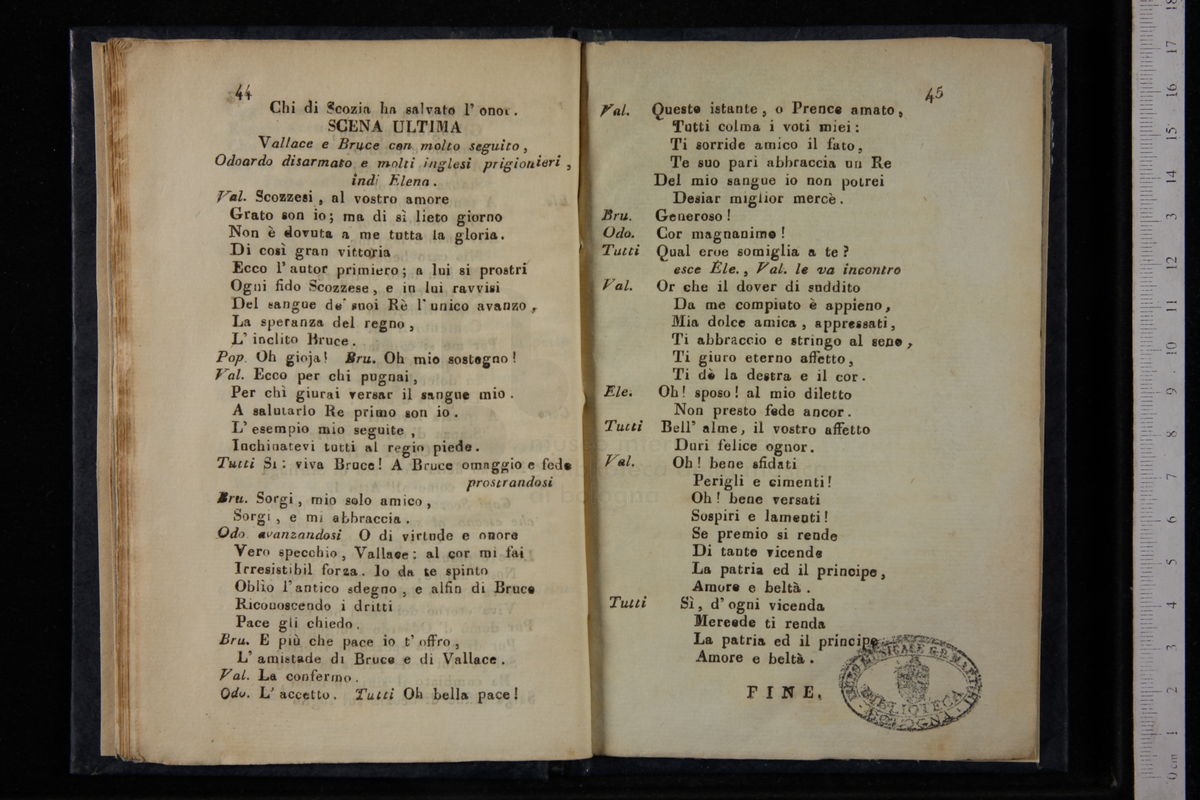 44
Chi di Scozia ha salvato l' onor.
SCENA ULTIMA
Vallace e Bruce con molto seguito,
Odoardo disarmato e molti inglesi prigionieri,
indi Elena.
Val. Scozzesi, al vostro amore
Grato son io; ma di sì lieto giorno
Non è dovuta a me tutta la gloria.
Di così gran vittoria
Ecco l' autor primiero; a lui si prostri
Ogni fido Scozzese, e in lui ravvisi
Del sangue de' suoi Rè l' unico avanzo,
La speranza del regno,
L' inclito Bruce.
Pop. Oh gioja! Bru. Oh mio sostegno!
Val. Ecco per chi pugnai,
Per chì giurai versar il sangue mio.
A salutarlo Re primo son io.
L' esempio mio seguite,
Inchinatevi tutti al regio piede.
Tutti Sì: viva Bruce! A Bruce omaggio e fede
prostrandosi
Bru. Sorgi, mio solo amico,
Sorgi, e mi abbraccia.
Odo. avanzandosi O di virtude e onore
Vero specchio, Vallace: al cor mi fai
Irresistibil forza. Io da te spinto
Oblìo l' antico sdegno, e alfin di Bruce
Riconoscendo i dritti
Pace gli chiedo.
Bru. E più che pace io t' offro,
L' amistade di Bruce e di Vallace.
Val. La confermo.
Odo. L' accetto. Tutti Oh bella pace!
45
Val. Questo istante, o Prence amato,
Tutti colma i voti miei:
Ti sorride amico il fato,
Te suo pari abbraccia un Re
Del mio sangue io non potrei
Desiar miglior mercè.
Bru. Generoso!
Odo. Cor magnanimo!
Tutti Qual eroe somiglia a te?
esce Ele., Val. le va incontro
Val. Or che il dover di suddito
Da me compiuto è appieno,
Mia dolce amica, appressati,
Ti abbraccio e stringo al seno,
Ti giuro eterno affetto,
Ti dò la destra e il cor.
Ele. Oh! sposo! al mio diletto
Non presto fede ancor.
Tutti Bell' alme, il vostro affetto
Duri felice ognor.
Val. Oh! bene sfidati
Perigli e cimenti!
Oh! bene versati
Sospiri e lamenti!
Se premio si rende
Di tante vicende
La patria ed il principe,
Amore e beltà.
Tutti Sì, d' ogni vicenda
Mercede ti renda
La patria ed il principe
Amore e beltà.
FINE.
MUSICALE G.B. MARTINI
BIBLIOTECA
BOLOGNA